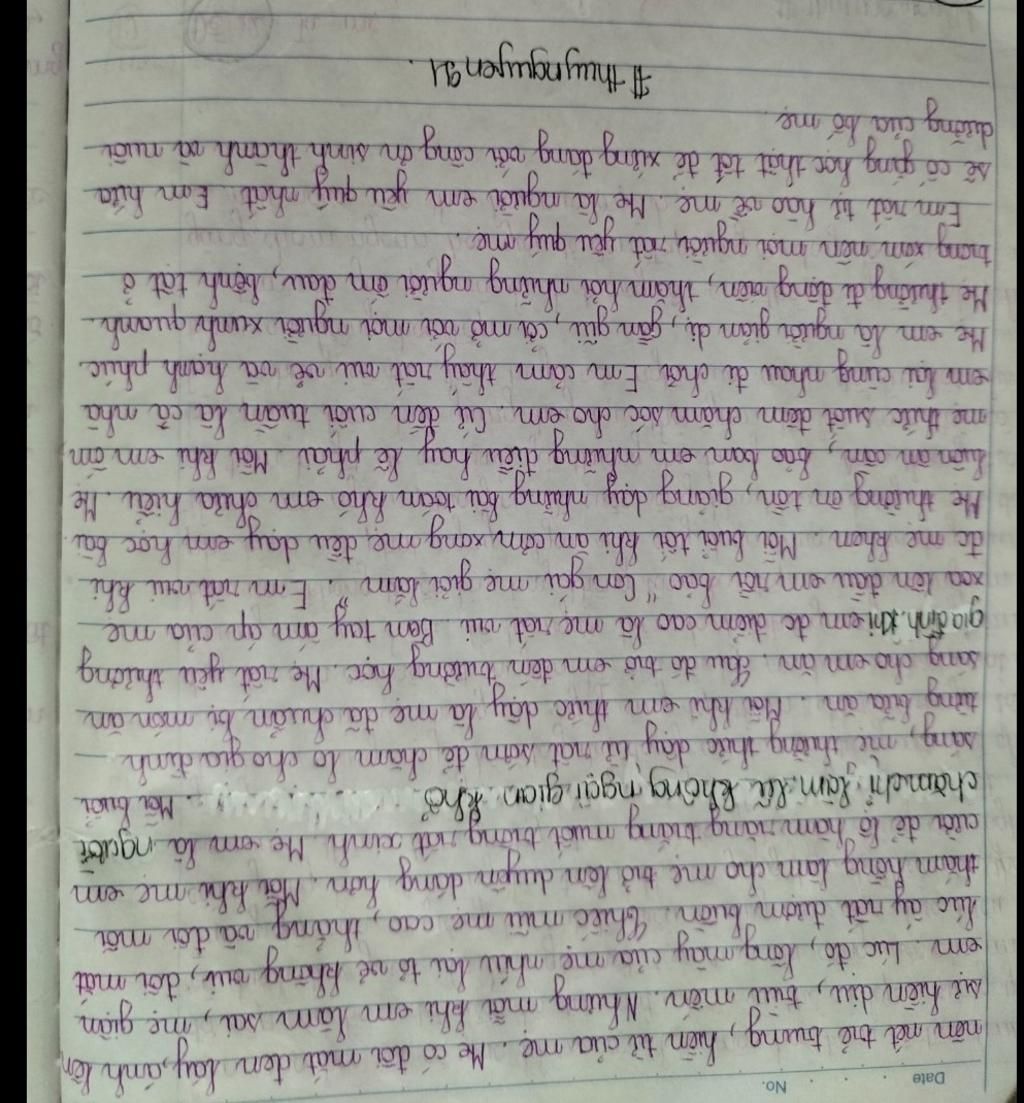 Date No.
nên nét trẻ trung, hiền từ của mẹ. Mẹ có đôi mắt đen láy, ánh lên
sự hiền dịu, trìu mến. Nhưng mỗi khi em làm sai, mẹ giận
em. Lúc đó, lông mày của mẹ nhíu lại tỏ vẻ không vui, đôi mắt
lúc ấy rất đượm buồn. Chiếc mũi mẹ cao, thẳng và đôi môi
thắm hồng làm cho mẹ trở lên duyên dáng hơn. Mỗi khi mẹ em
cười để lộ hàm răng trắng muốt trông rất xinh. Mẹ em là người
chăm chỉ làm lũ không ngại gian khổ. Mỗi buổi
sáng, mẹ thường thức dậy từ rất sớm để chăm lo cho gia đình
từng bữa ăn. Mỗi khi em thức dậy là mẹ đã chuẩn bị món ăn
sáng cho em ăn. Sau đó trở em đến trường học. Mẹ rất yêu thương
gia đình. Khi em đc điểm cao là mẹ rất vui. Bàn tay ấm áp của mẹ
xoa lên đầu em rồi bảo "Con gái mẹ giỏi lắm". Em rất vui khi
đc mẹ khen. Mỗi buổi tối khi ăn cơm xong mẹ đều dạy em học bài.
Mẹ thường ôn tồn, giảng dạy những bài toán khó em chưa hiểu. Mẹ
luôn ân cần, bảo ban em những điều hay lẽ phải. Mỗi khi em ốm,
mẹ thức suốt đêm chăm sóc cho em. Cứ đến cuối tuần là cả nhà
em lại cùng nhau đi chơi. Em cảm thấy rất vui vẻ và hạnh phúc.
Mẹ em là người giản dị, gần gũi, cởi mở với mọi người xunh quanh.
Mẹ thường đi động viên, thăm hỏi những người ốm đau, bệnh tật ở
trong xóm nên mọi người rất yêu quý mẹ.
Em rất tự hào về mẹ. Mẹ là người em yêu quý nhất. Em hứa
sẽ cố gắng học thật tốt để xứng đáng với công ơn sinh thành và nuôi
dưỡng của bố mẹ.
# thuynguyen91.